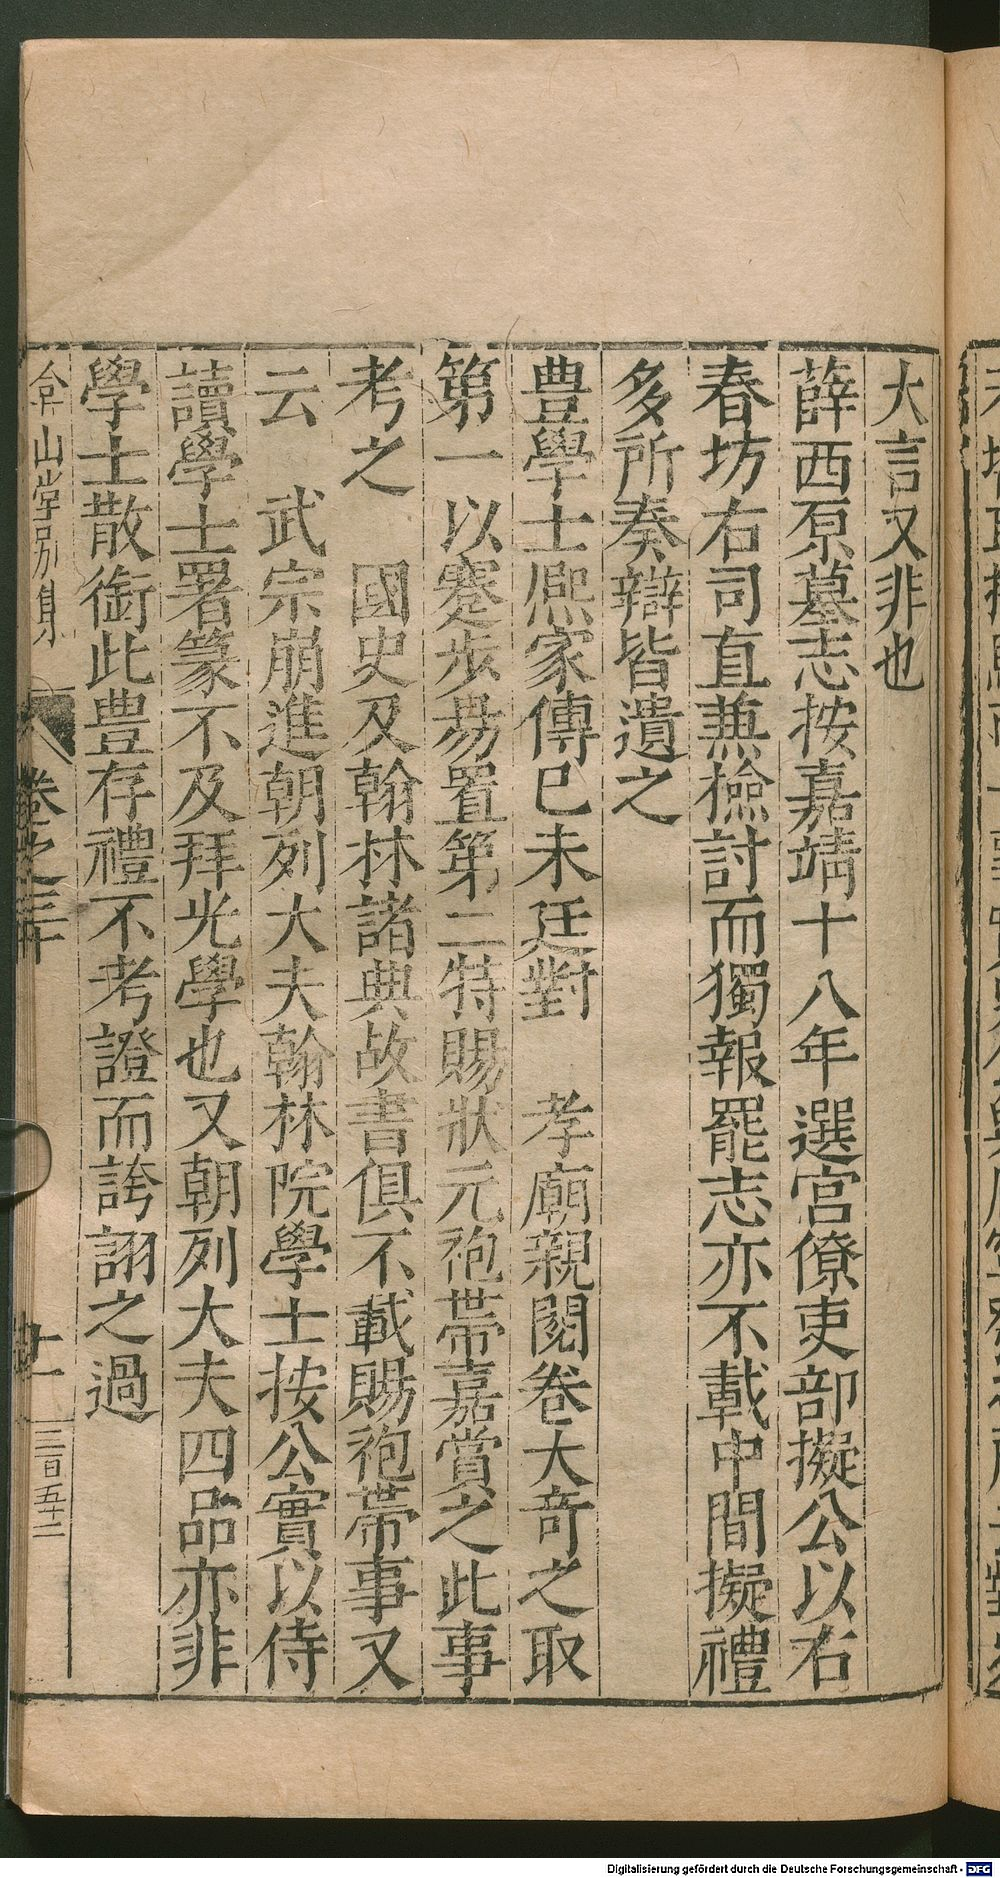 大言又非也
薛西原墓志按嘉靖十八年選宮僚吏部擬公以右
春坊右司直兼撿討而獨報罷志亦不載中間擬禮
多所奏辯皆遺之
豊學士熈家傳巳未廷對　孝廟親閱卷大竒之取
第一以蹇步昜置第二特賜狀元袍帶嘉賞之此事
考之　國史及翰林諸典故書俱不載賜袍帶事又
云　武宗崩進朝列大夫翰林院學士按公實以侍
讀學士署篆不及拜光學也又朝列大夫四品亦非
學士散銜此豊存禮不考證而誇詡之過
弇山堂別集
卷之三十
十一
三百五十二
Digitalisierung gefördert durch die Deutsche Forschungsgemeinschaft - DFG